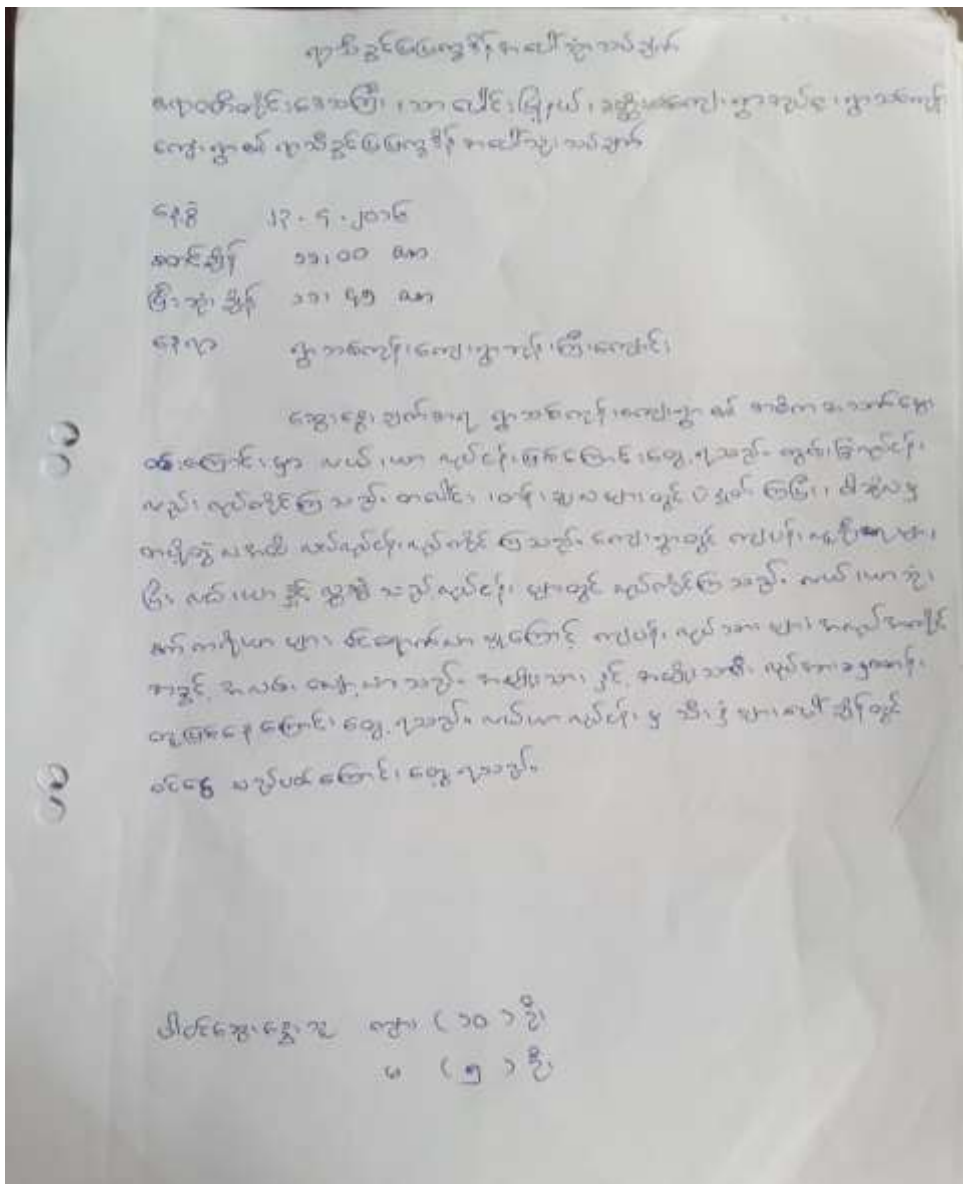 ရာသီခွင်ပြပြက္ခဒိန်အပေါ်သုံးသပ်ချက်
ဧရာဝတီတိုင်းဒေသကြီး၊ သာပေါင်းမြို့နယ်၊ ကျေးရွာအုပ်စု၊ ရွာသစ်ကုန်း
ကျေးရွာ၏ ရာသီခွင်ပြပြက္ခဒိန် အပေါ်သုံးသပ်ချက်
နေ့စွဲ ၂၃-၄-၂၀၁၆
စတင်ချိန် ၁၁:၀၀ am
ပြီးဆုံးချိန် ၁၁:၄၅ am
နေရာ ရွာသစ်ကုန်းကျေးရွာဘုန်းကြီးကျောင်း
ဆွေးနွေးချက်အရ ရွာသစ်ကုန်းကျေးရွာ၏ အဓိကအသက်မွေး
ဝမ်းကြောင်းမှာ လယ်ယာလုပ်ငန်းဖြစ်ကြောင်းတွေ့ရသည်။ ခြံလုပ်ငန်း
လည်း လုပ်ကိုင်ကြသည်။ တပေါင်း၊ တန်ခူးလများတွင် ကြပြီး၊ ဝါဆိုလမှ
တပို့တွဲလအထိ လုပ်ငန်းလုပ်ကိုင်ကြသည်။ ကျေးရွာတွင် ကျပန်းလုပ်သားများ
ပြီး လယ်ယာနှင့် သည့်လုပ်ငန်းများတွင် လုပ်ကိုင်ကြသည်။ လယ်ယာသုံး
စက်ကိရိယာများ ဝင်ရောက်လာမှုကြောင့် ကျပန်းလုပ်သားများ အလုပ်အကိုင်
အခွင့်အလမ်း လာသည်။ အမျိုးသားနှင့် အမျိုးသမီး လုပ်အားခ
တူဖြစ်နေကြောင်းတွေ့ရသည်။ လယ်ယာလုပ်ငန်းမှ သီးနှံများပေါ်ချိန်တွင်
ဝင်ငွေ ကြောင်းတွေ့ရသည်။
ပါဝင်ဆွေးနွေးသူ ကျား (၁၀) ဦး
မ (၅) ဦး